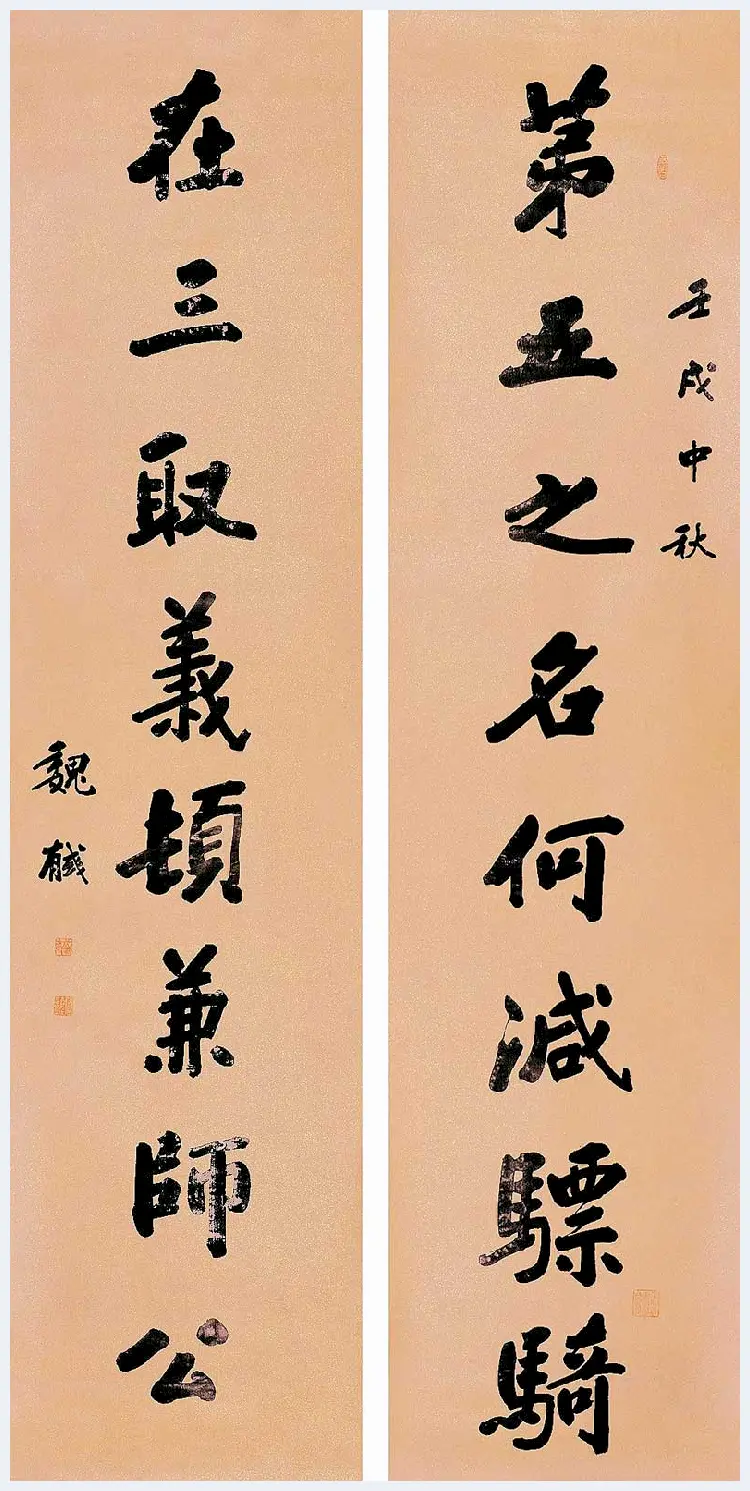 壬戌中秋
第五之名何減驃騎
在三取義頓兼師公
魏戫